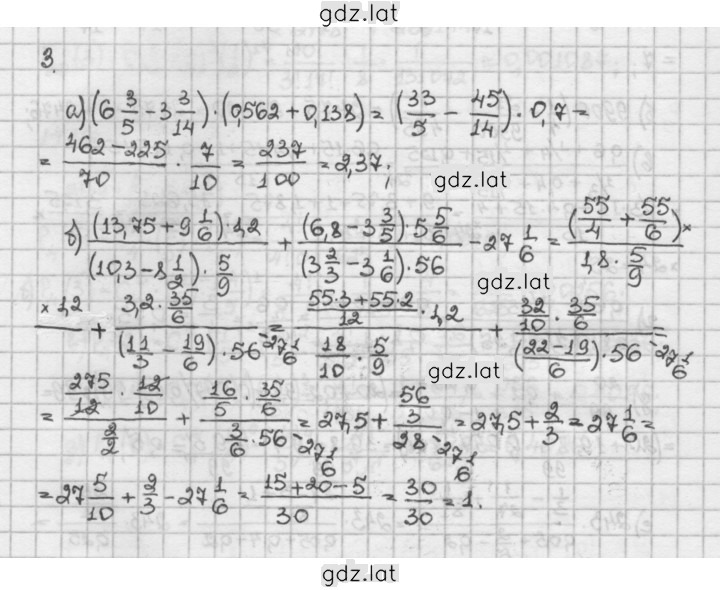 gdz.lat
3.
а) (6 3/5 − 3 3/14) · (0,562 + 0,138) = (33/5 − 45/14) · 0,7 =
= (462 − 225)/70 · 7/10 = 237/100 = 2,37;
gdz.lat
б) ((13,75 + 9 1/6) · 1,2)/((10,3 − 8 1/2) · 5/9) + ((6,8 − 3 3/5) · 5 5/6)/((3 2/3 − 3 1/6) · 56) − 27 1/6 = ((55/4 + 55/6) ×)/(1,8 · 5/9)
gdz.lat
× 1,2/ + (3,2 · 35/6)/((11/3 − 19/6) · 56) − 27 1/6 = ((55·3 + 55·2)/12 · 1,2)/(18/10 · 5/9) + (32/10 · 35/6)/(((22 − 19)/6) · 56) − 27 1/6 =
gdz.lat
= (275/12 · 12/10)/(2/2) + (16/5 · 35/6)/(3/6 · 56) − 27 1/6 = 27,5 + (56/3)/28 − 27 1/6 = 27,5 + 2/3 = 27 1/6 =
= 27 5/10 + 2/3 − 27 1/6 = (15 + 20 − 5)/30 = 30/30 = 1.
gdz.lat
gdz.lat